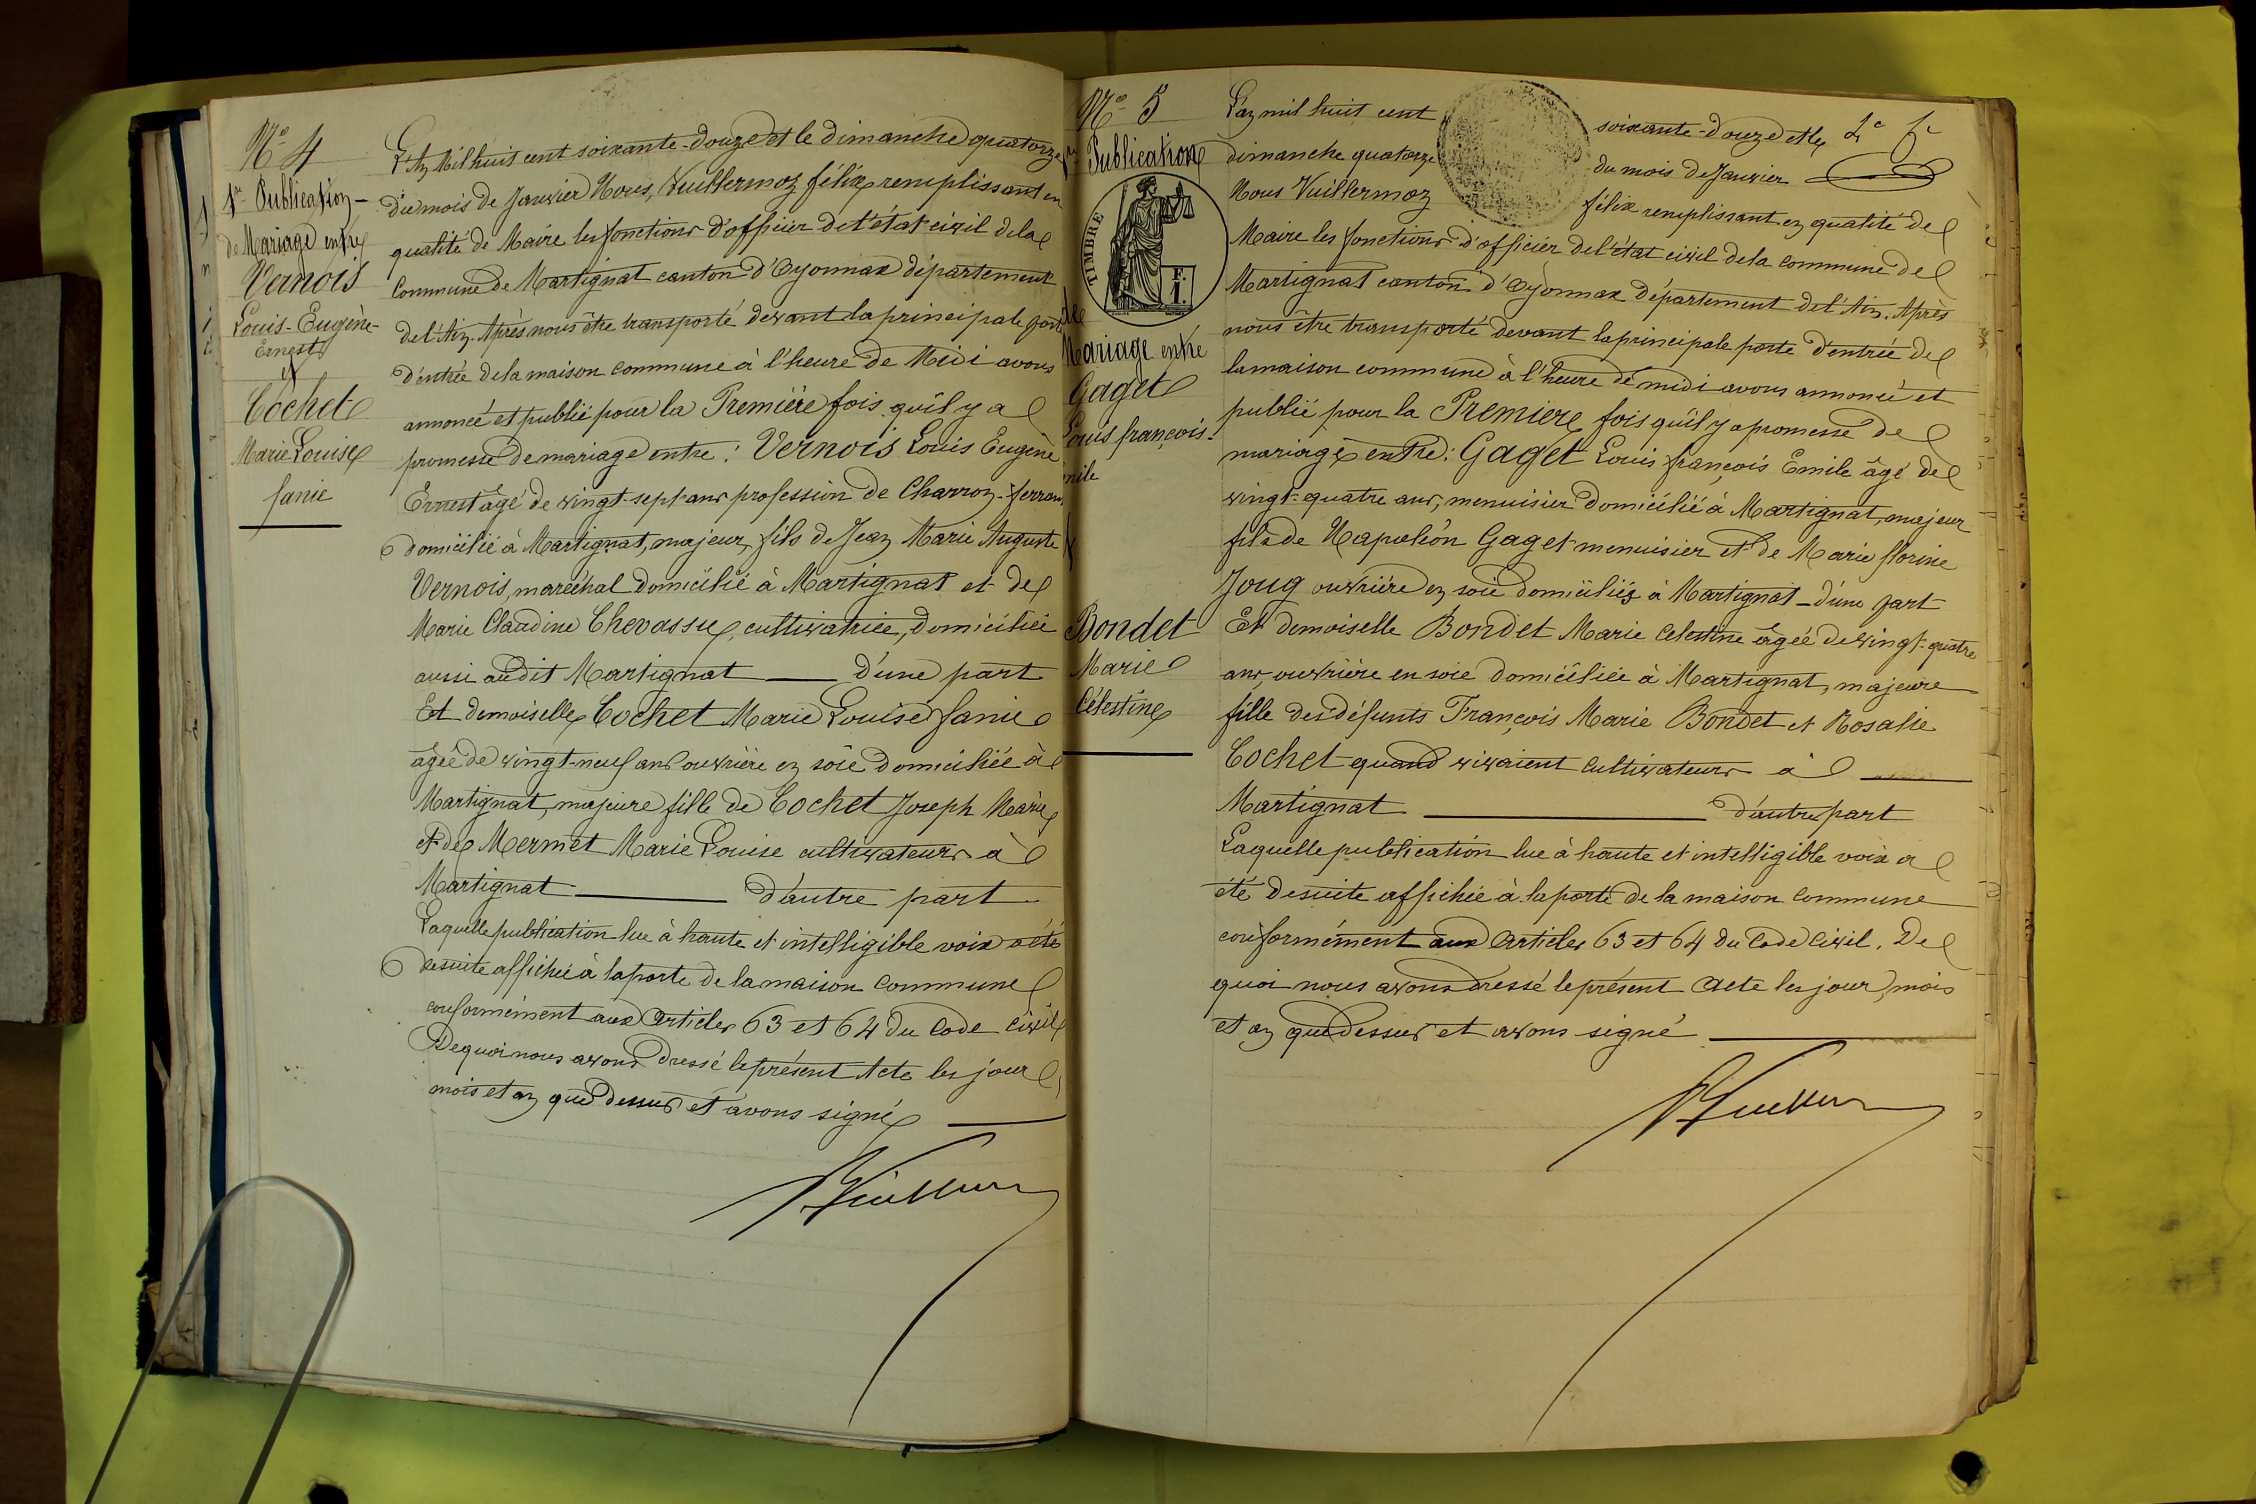 N° 4
1re Publication
de Mariage entre
Vernois
Louis-Eugène-
Ernest
et
Cochet
Marie Louise
fanie
L'An Mil huit cent soixante-douze et le dimanche quatorze
du mois de Janvier Nous, Vuillermoz félix remplissant en
qualité de Maire les fonctions d'officier de l'état civil de la
Commune de Martignat canton d'Oyonnax département
de l'Ain. Après nous être transporté devant la principale porte
d'entrée de la maison commune à l'heure de Midi avons
annoncé et publié pour la Première fois qu'il y a
promesse de mariage entre : Vernois Louis Eugène
Ernest âgé de vingt-sept ans profession de Charron-ferrant
domicilié à Martignat, majeur, fils de Jean Marie Auguste
Vernois, maréchal domicilié à Martignat et de
Marie Claudine Chevassu, cultivatrice, domiciliée
aussi audit Martignat d'une part
Et demoiselle Cochet Marie Louise fanie
âgée de vingt-neuf ans ouvrière en soie domiciliée à
Martignat, majeure fille de Cochet Joseph Marie
et de Mermet Marie Louise cultivateurs à
Martignat d'autre part
Laquelle publication lue à haute et intelligible voix a été
desuite affichée à la porte de la maison commune
conformément aux Articles 63 et 64 du Code civil
De quoi nous avons dressé le présent Acte les jour
mois et an que dessus et avons signé
N° 5
Publication
TIMBRE
F.
1.
Mariage entre
Gaget
Louis françois
Bondet
Marie
Célestine
L'an mil huit cent soixante-douze et le
dimanche quatorze du mois de Janvier
Nous Vuillermoz félix remplissant en qualité de
Maire les fonctions d'officier de l'état civil de la commune de
Martignat canton d'Oyonnax département de l'Ain. Après
nous être transporté devant la principale porte d'entrée de
la maison commune à l'heure de midi avons annoncé et
publié pour la Première fois qu'il y a promesse de
mariage entre : Gaget Louis françois Emile âgé de
vingt-quatre ans, menuisier domicilié à Martignat, majeur
fils de Napoléon Gaget menuisier et de Marie florine
Joug ouvrière en soie domiciliés à Martignat d'une part
Et demoiselle Bondet Marie Celestine âgée de vingt-quatre
ans, ouvrière en soie domiciliée à Martignat, majeure
fille des défunts François Marie Bondet et Rosalie
Cochet quand vivaient cultivateurs à
Martignat d'autre part
Laquelle publication lue à haute et intelligible voix a
été desuite affichée à la porte de la maison commune
conformément aux Articles 63 et 64 du Code Civil. De
quoi nous avons dressé le présent Acte les jour, mois
et an que dessus et avons signé